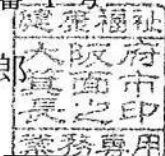 郎
健康福祉
大阪府
箕面市
長之印
業務専用